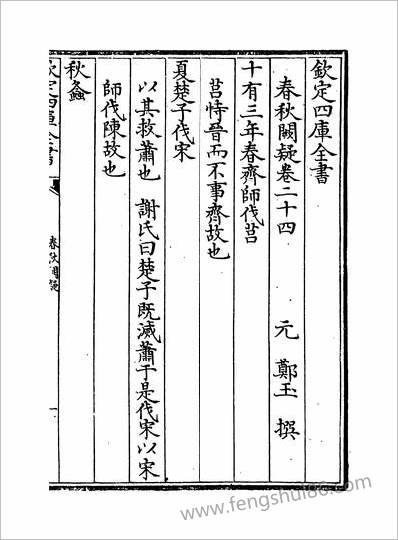 欽定四庫全書
春秋闕疑卷二十四 元 鄭玉 撰
十有三年春齊師伐莒
莒恃晉而不事齊故也
夏楚子伐宋
以其救蕭也 謝氏曰楚子既滅蕭于是伐宋以宋
師伐陳故也
秋螽
欽定四庫全書
春秋闕疑
一
www.fengshui86.com